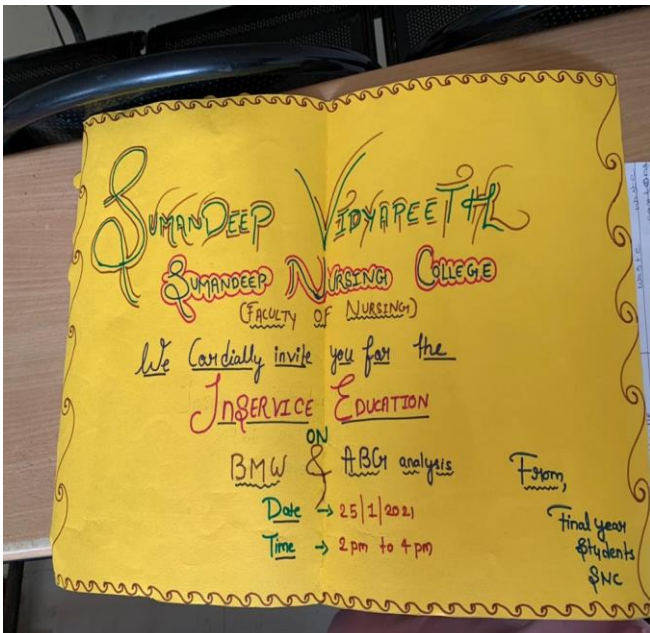 Sumandeep Vidyapeeth
Sumandeep Nursing College
(Faculty of Nursing)
We Cordially invite you for the
Inservice Education
ON
BMW & ABG analysis
Date → 25/1/2021
Time → 2 pm to 4 pm
From,
Final year
Students
SNC